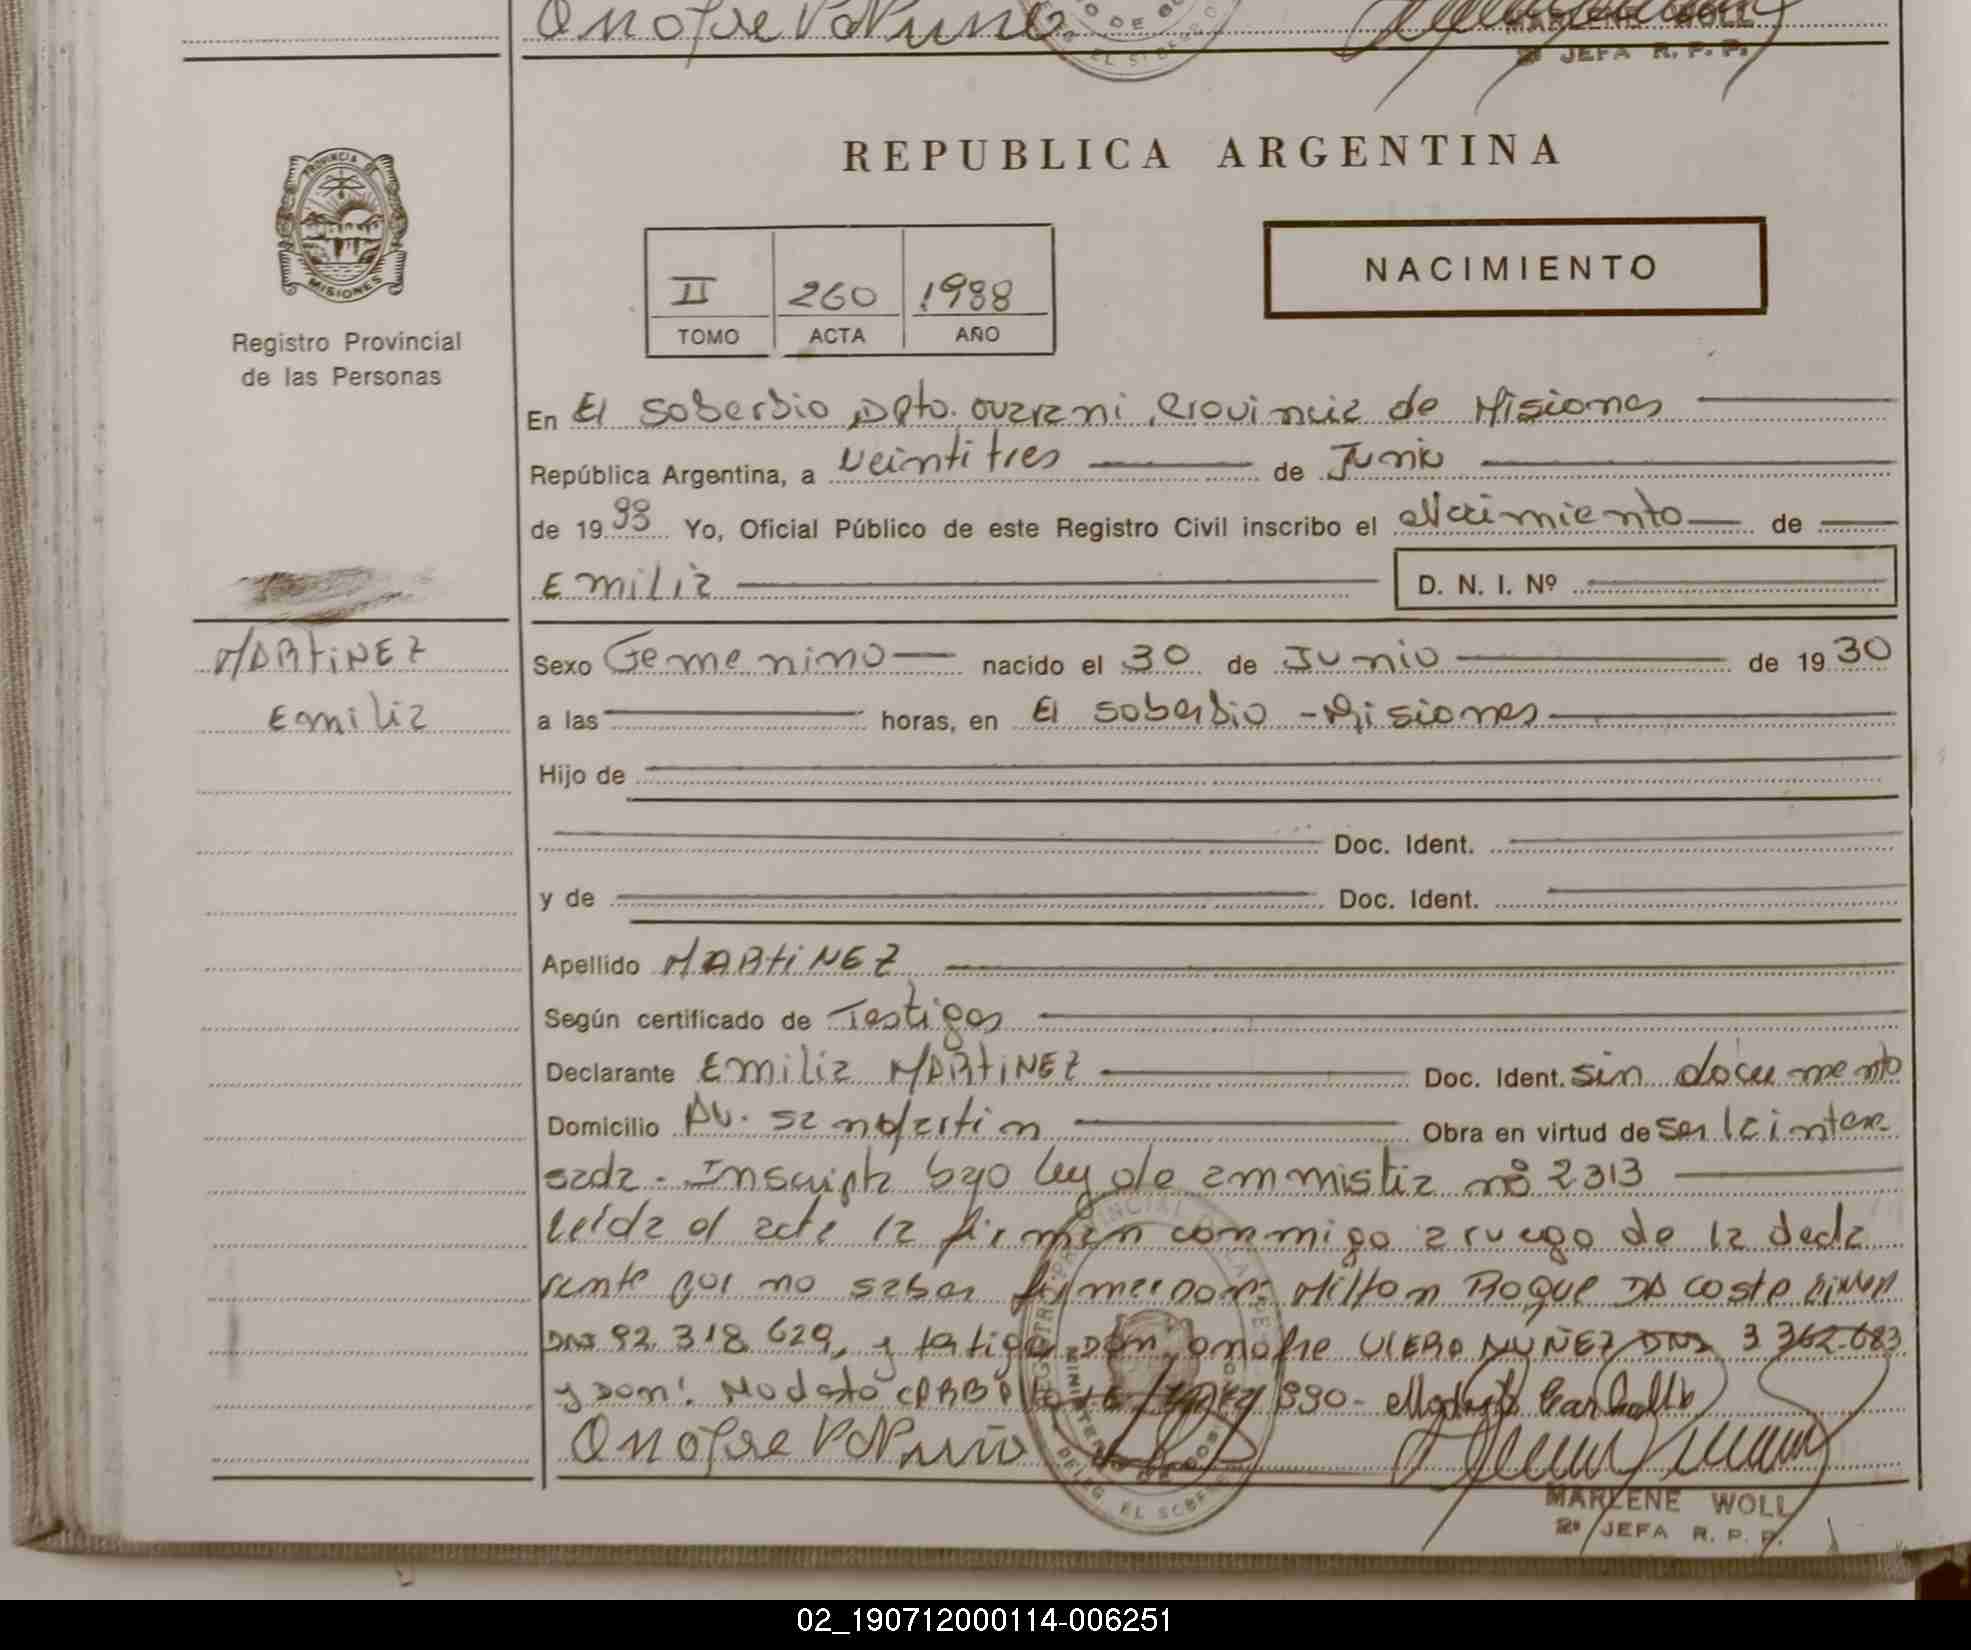 Onofre
MARLENE WOLL
2º JEFA R. P. P.
PROVINCIA DE
MISIONES
Registro Provincial
de las Personas
REPUBLICA ARGENTINA
II 260 1988
TOMO ACTA AÑO
NACIMIENTO
En El Soberbio, Dpto. Guarani, Provincia de Misiones
República Argentina, a Veintitres de Junio
de 1988 Yo, Oficial Público de este Registro Civil inscribo el Nacimiento de
Emilia D. N. I. Nº
MARTINEZ
Emilia
Sexo Femenino nacido el 30 de Junio de 1930
a las horas, en El Soberbio - Misiones
Hijo de
Doc. Ident.
y de Doc. Ident.
Apellido MARTINEZ
Según certificado de Testigos
Declarante Emilia MARTINEZ Doc. Ident. sin documento
Domicilio Av. San Martin Obra en virtud de ser la intere
sada - Inscripta bajo ley de ammistia nº 2313
Leida el acta la firman conmigo a ruego de la decla
rante por no saber firmar don: Milton Roque DA COSTA
DNI 92.318.629, y testigos Don, Onofre VIERA NUÑEZ DNI 3 362.683
y Don: Modesto 990 - Modesto Carballo
Onofre
MARLENE WOLL
2º JEFA R. P. P.
02_190712000114-006251